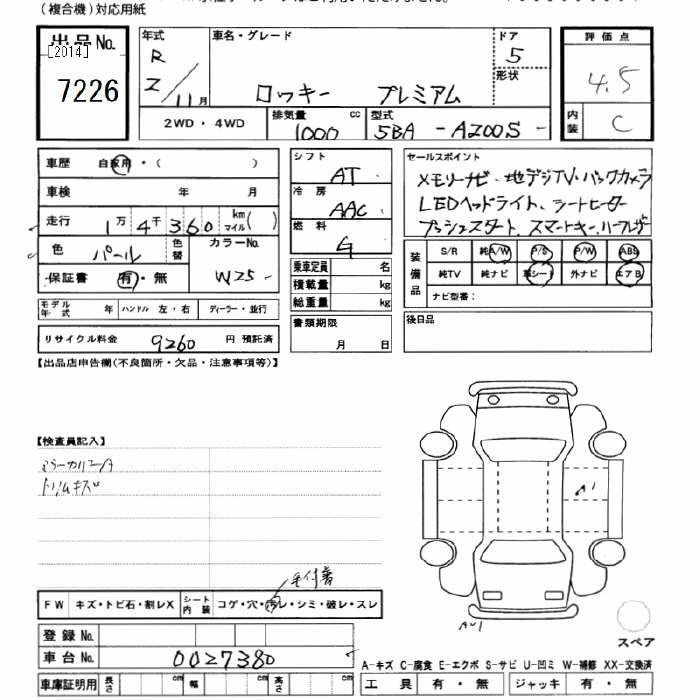 (複合機)対応用紙
出品No.
[2014]
7226
年式
R
2/11月
車名・グレード
ロッキー プレミアム
ドア
5
形状
評価点
4.5
内装
C
2WD・4WD
排気量
1000 cc
型式
5BA - A200S -
車歴 自家用・( )
車検 年 月
走行 1万4千360 km マイル( )
色 パール
色替
カラーNo.
W25-
保証書 有・無
モデル年式 年 ハンドル 左・右 ディーラー・並行
リサイクル料金 9260 円 預託済
シフト
AT
冷房
AAC
燃料
G
乗車定員 名
積載量 kg
総重量 kg
書類期限
月 日
セールスポイント
メモリーナビ、地デジTV、バックカメラ
LEDヘッドライト、シートヒーター
プッシュスタート、スマートキー、ハーフレザー
装備品
S/R 純A/W P/S P/W ABS
純TV 純ナビ 革シート 外ナビ エアB
ナビ型番:
後日品
【出品店申告欄(不良箇所・欠品・注意事項等)】
【検査員記入】
トリムキズ
A1
毛付着
FW キズ・トビ石・割レX
シート内装 コゲ・穴・汚レ・シミ・破レ・スレ
登録No.
車台No. 0027380
車庫証明用 長さ cm 幅 cm 高さ cm
スペア
A-キズ C-腐食 E-エクボ S-サビ U-凹ミ W-補修 XX-交換済
工具 有・無 ジャッキ 有・無